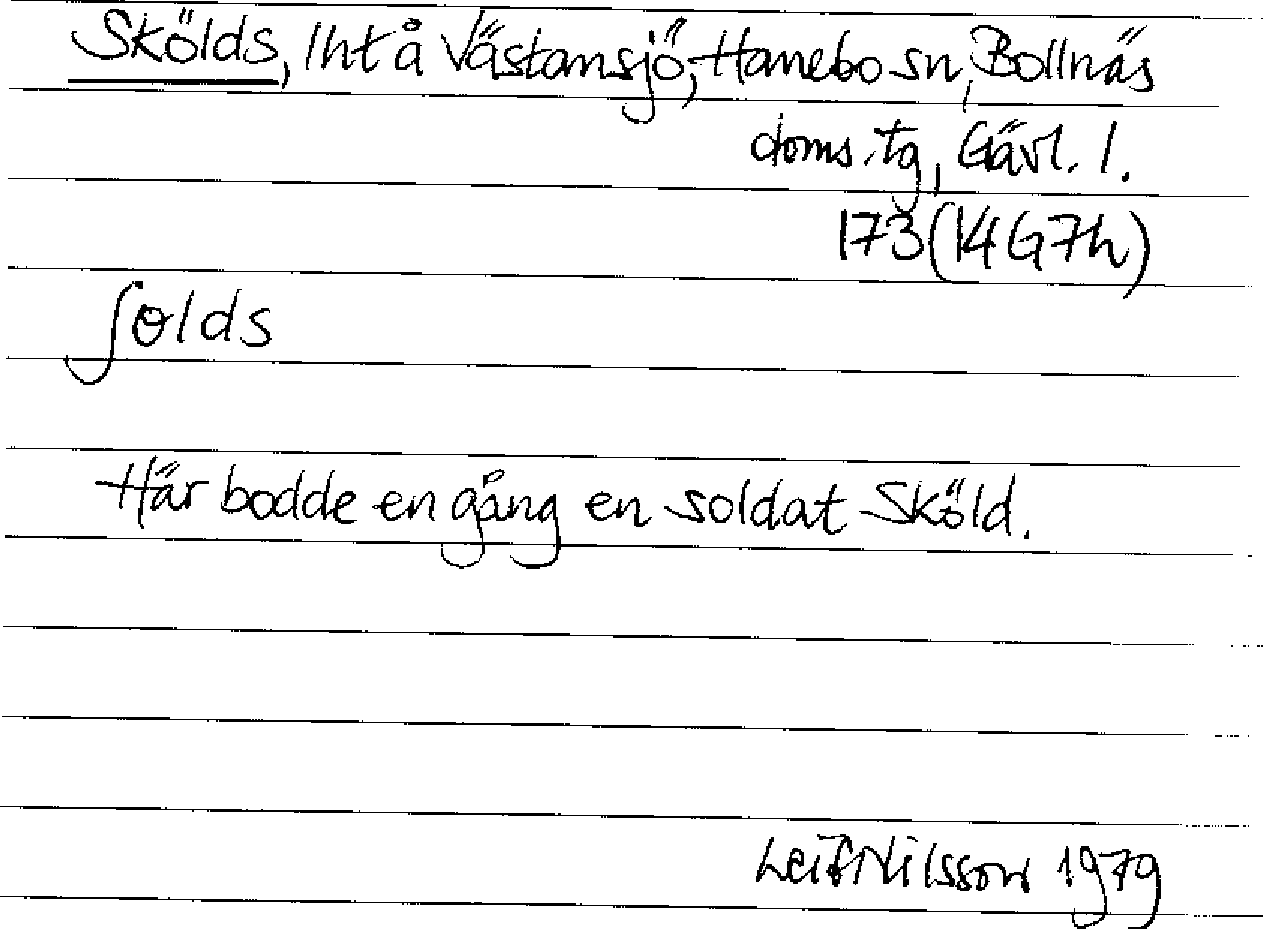 Skölds, lht å Västansjö, Hanebo sn, Bollnäs
doms. tg, Gävl. l.
173 (14 G 7h)
ʃɵlds
Här bodde en gång en soldat Sköld.
Leif Nilsson 1979